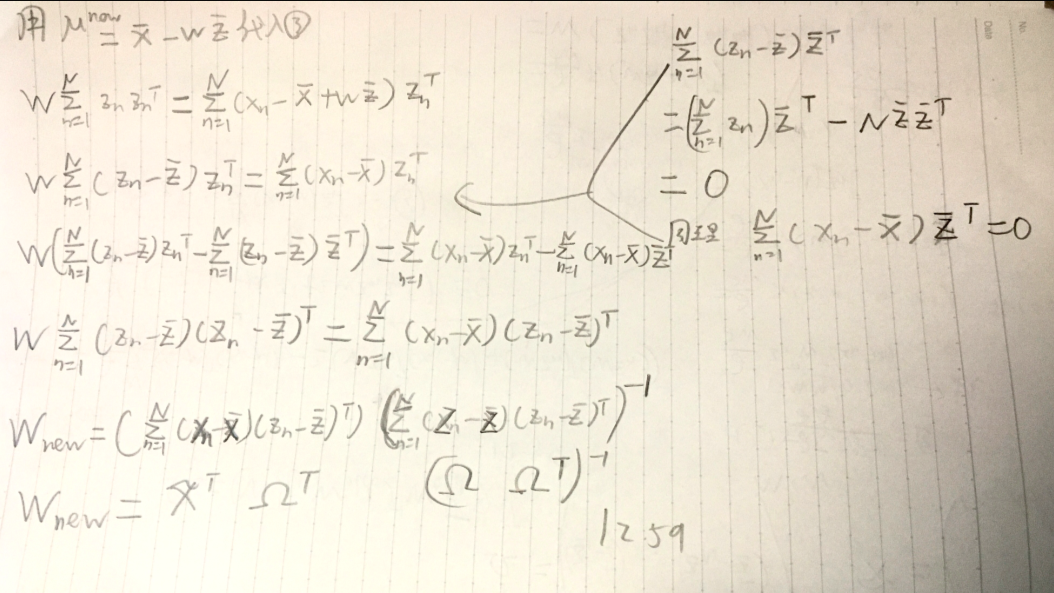 用 μ^{new} = x̄ - W z̄ 代入③
W Σ_{n=1}^{N} z_n z_n^T = Σ_{n=1}^{N} (x_n - x̄ + W z̄) z_n^T
W Σ_{n=1}^{N} (z_n - z̄) z_n^T = Σ_{n=1}^{N} (x_n - x̄) z_n^T
W(Σ_{n=1}^{N} (z_n - z̄) z_n^T - Σ_{n=1}^{N} (z_n - z̄) z̄^T) = Σ_{n=1}^{N} (x_n - x̄) z_n^T - Σ_{n=1}^{N} (x_n - x̄) z̄^T
W Σ_{n=1}^{N} (z_n - z̄)(z_n - z̄)^T = Σ_{n=1}^{N} (x_n - x̄)(z_n - z̄)^T
W_{new} = (Σ_{n=1}^{N} (x_n - x̄)(z_n - z̄)^T) (Σ_{n=1}^{N} (z_n - z̄)(z_n - z̄)^T)^{-1}
W_{new} = X̃^T Ω^T (Ω Ω^T)^{-1}
Σ_{n=1}^{N} (z_n - z̄) z̄^T
= (Σ_{n=1}^{N} z_n) z̄^T - N z̄ z̄^T
= 0
同理 Σ_{n=1}^{N} (x_n - x̄) z̄^T = 0
12.59